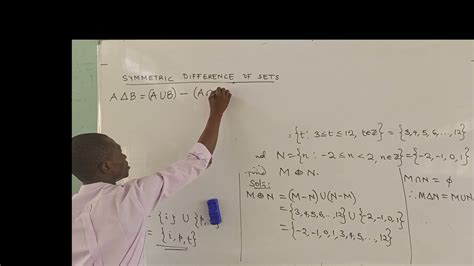 SYMMETRIC DIFFERENCE OF SETS
A Δ B = (A ∪ B) − (A ∩
= {t : 3 ≤ t ≤ 12, t ∈ ℤ} = {3, 4, 5, 6, ..., 12}
nd N = {n : -2 ≤ n < 2, n ∈ ℤ} = {-2, -1, 0, 1}
find M ⊕ N.
Soln:
M ⊕ N = (M − N) ∪ (N − M)
= {3, 4, 5, 6, ..., 12} ∪ {-2, -1, 0, 1}
= {-2, -1, 0, 1, 3, 4, 5, ..., 12}
M ∩ N = ϕ
∴ M Δ N = M ∪ N
= {i} ∪ {p,
= {i, p, t}